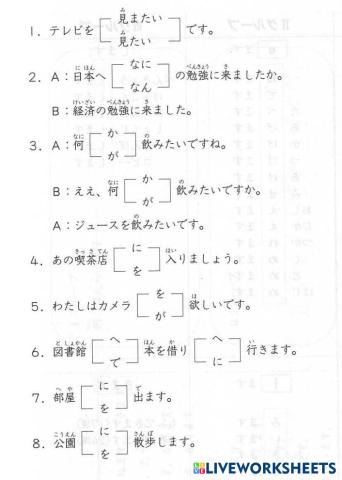 1．テレビを［見またい／見たい］です。
2．A：日本へ［なに／なん］の勉強に来ましたか。
B：経済の勉強に来ました。
3．A：何［か／が］飲みたいですね。
B：ええ、何［か／が］飲みたいですか。
A：ジュースを飲みたいです。
4．あの喫茶店［に／を］入りましょう。
5．わたしはカメラ［を／が］欲しいです。
6．図書館［へ／で］本を借り［へ／に］行きます。
7．部屋［に／を］出ます。
8．公園［に／を］散歩します。
LIVEWORKSHEETS